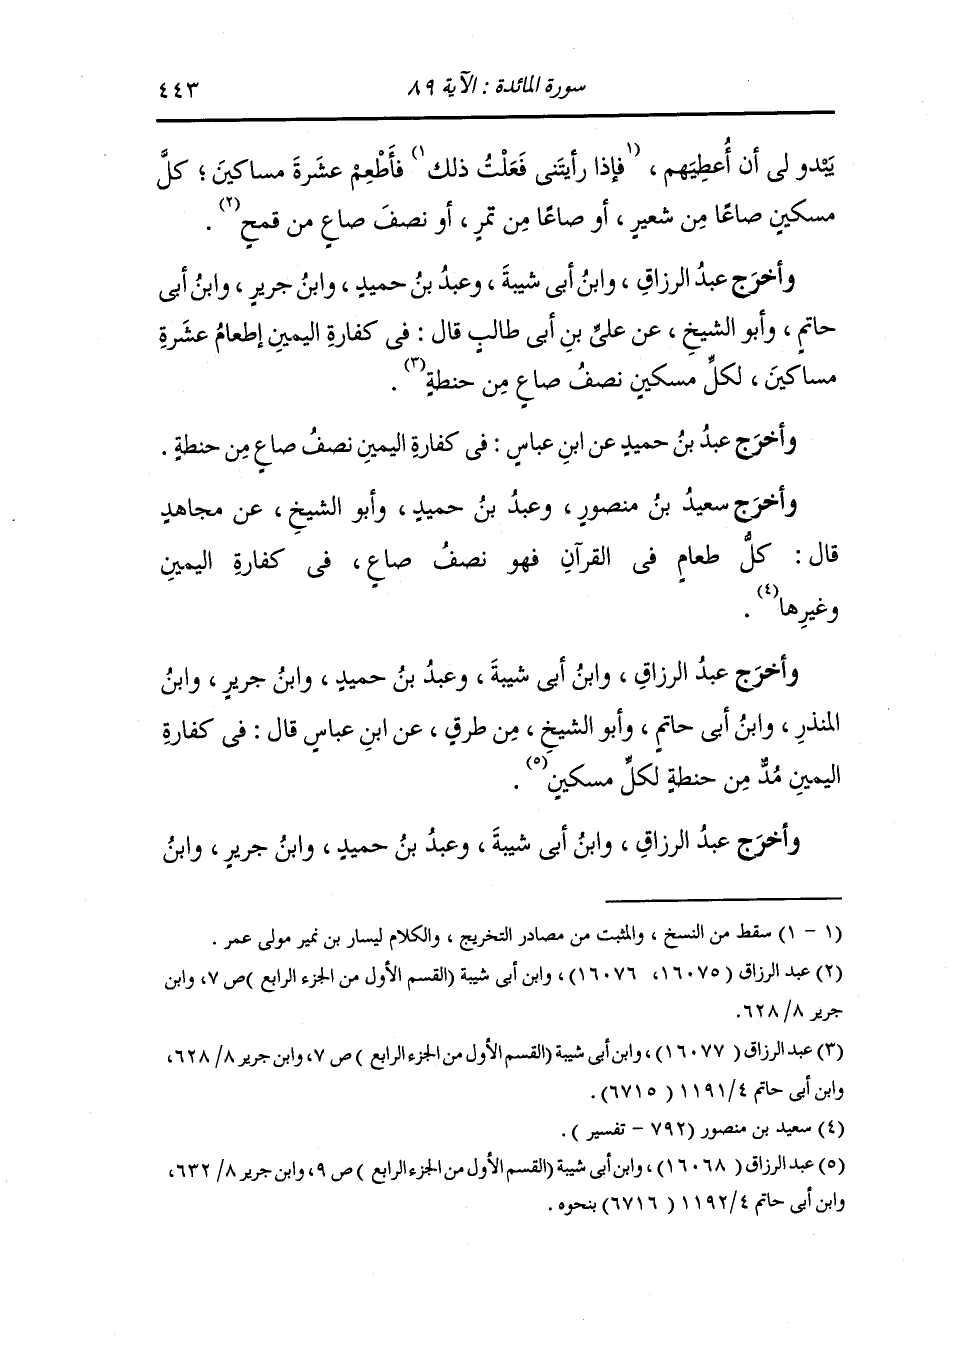 سورة المائدة : الآية ٨٩ ٤٤٣
يَبْدو لى أن أُعطِيَهم ، (١فإذا رأيتَنى فَعَلْتُ ذلك١) فأَطْعِمْ عشَرةَ مساكينَ ؛ كلَّ
مسكينٍ صاعًا مِن شعيرٍ ، أو صاعًا مِن تمرٍ ، أو نصفَ صاعٍ من قمحٍ(٢) .
وأخرَج عبدُ الرزاقِ ، وابنُ أبى شيبةَ ، وعبدُ بنُ حميدٍ ، وابنُ جريرٍ ، وابنُ أبى
حاتمٍ ، وأبو الشيخِ ، عن علىِّ بنِ أبى طالبٍ قال : فى كفارةِ اليمينِ إطعامُ عشَرةِ
مساكينَ ، لكلِّ مسكينٍ نصفُ صاعٍ مِن حنطةٍ(٣) .
وأخرَج عبدُ بنُ حميدٍ عن ابنِ عباسٍ : فى كفارةِ اليمينِ نصفُ صاعٍ مِن حنطةٍ .
وأخرَج سعيدُ بنُ منصورٍ ، وعبدُ بنُ حميدٍ ، وأبو الشيخِ ، عن مجاهدٍ
قال : كلُّ طعامٍ فى القرآنِ فهو نصفُ صاعٍ ، فى كفارةِ اليمينِ
وغيرِها(٤) .
وأخرَج عبدُ الرزاقِ ، وابنُ أبى شيبةَ ، وعبدُ بنُ حميدٍ ، وابنُ جريرٍ ، وابنُ
المنذرِ ، وابنُ أبى حاتمٍ ، وأبو الشيخِ ، مِن طرقٍ ، عن ابنِ عباسٍ قال : فى كفارةِ
اليمينِ مُدٌّ مِن حنطةٍ لكلِّ مسكينٍ(٥) .
وأخرَج عبدُ الرزاقِ ، وابنُ أبى شيبةَ ، وعبدُ بنُ حميدٍ ، وابنُ جريرٍ ، وابنُ
(١ - ١) سقط من النسخ ، والمثبت من مصادر التخريج ، والكلام ليسار بن نمير مولى عمر .
(٢) عبد الرزاق (١٦٠٧٥، ١٦٠٧٦)، وابن أبى شيبة (القسم الأول من الجزء الرابع )ص ٧، وابن
جرير ٨/ ٦٢٨.
(٣) عبد الرزاق (١٦٠٧٧)، وابن أبى شيبة (القسم الأول من الجزء الرابع ) ص ٧، وابن جرير ٨/ ٦٢٨،
وابن أبى حاتم ٤/ ١١٩١ (٦٧١٥).
(٤) سعيد بن منصور (٧٩٢ - تفسير ) .
(٥) عبد الرزاق (١٦٠٦٨)، وابن أبى شيبة (القسم الأول من الجزء الرابع ) ص ٩، وابن جرير ٨/ ٦٣٢،
وابن أبى حاتم ٤/ ١١٩٢ (٦٧١٦) بنحوه .